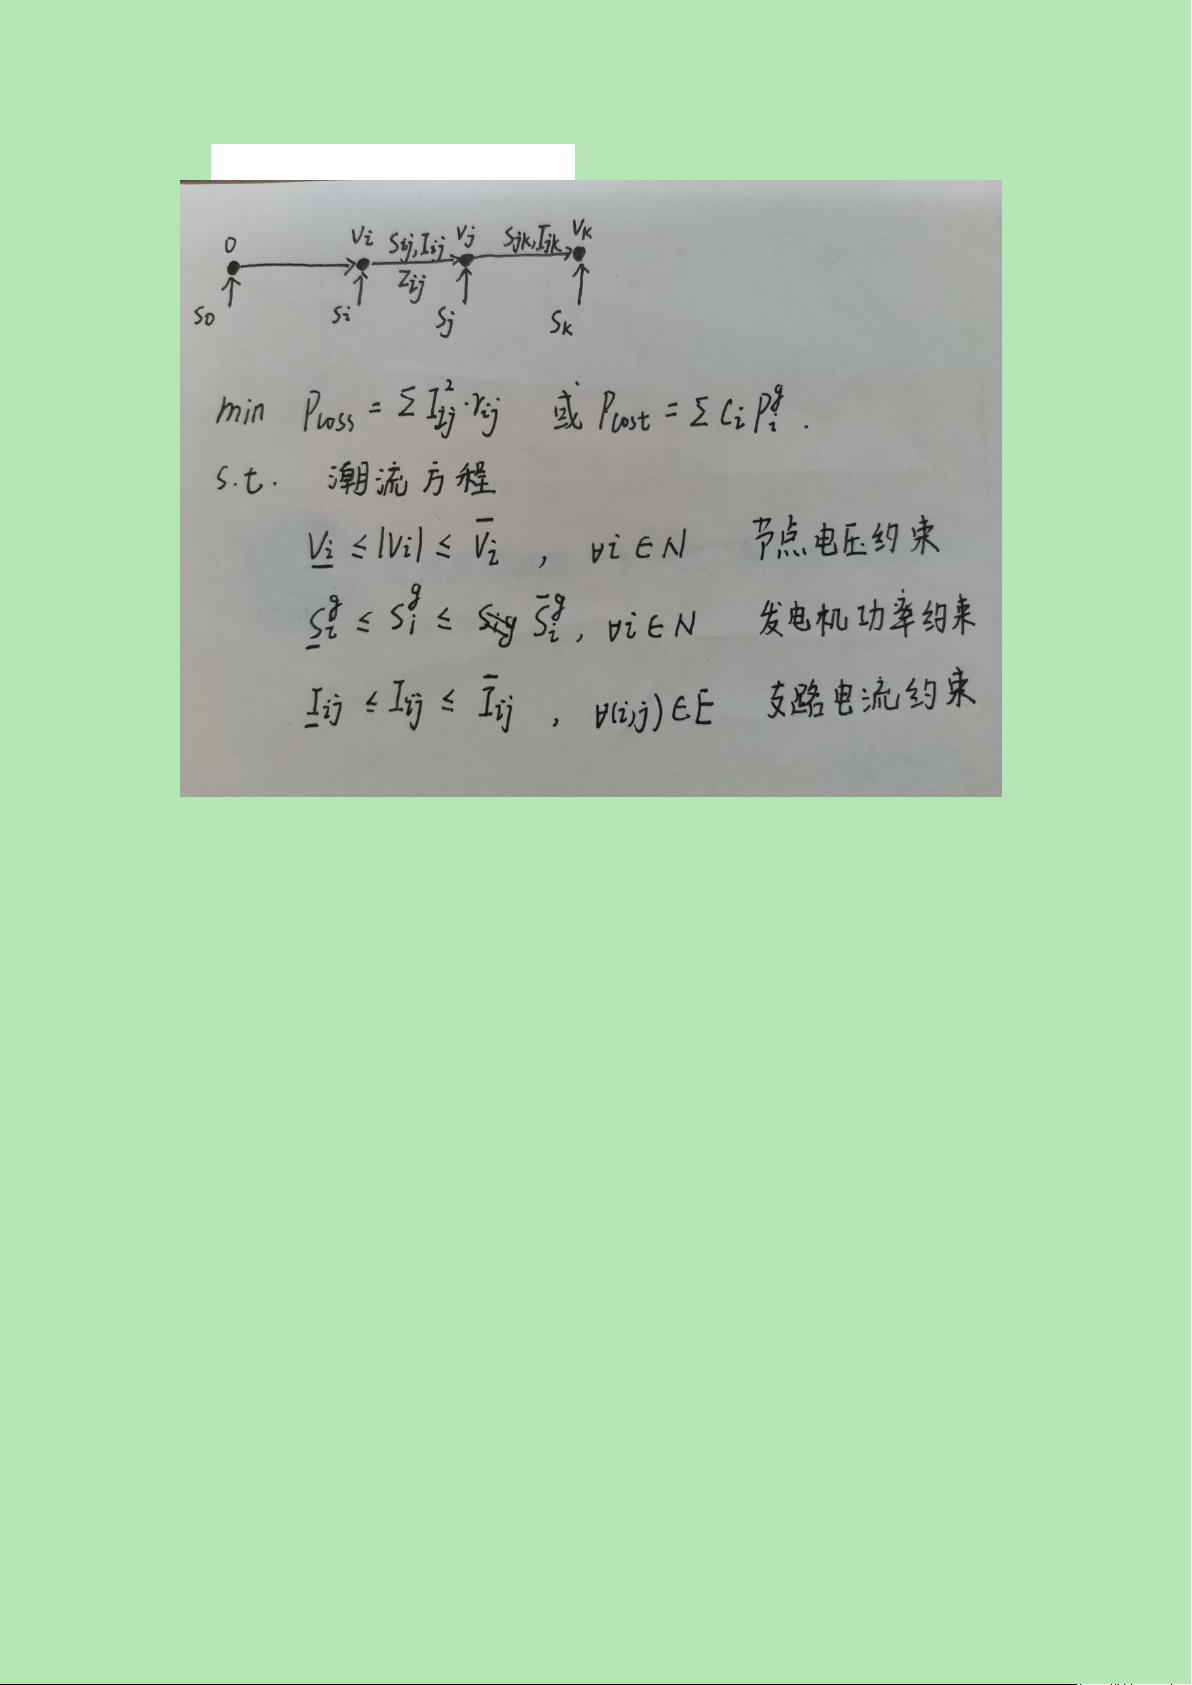 0 Vi Sij,Iij Vj Sjk,Ijk Vk
Zij
S0 Si Sj Sk
min Ploss = Σ I²ij·rij 或 Pcost = Σ Ci Pᵍi .
s.t. 潮流方程
V̲i ≤ |Vi| ≤ V̄i , ∀i∈N 节点电压约束
S̲ᵍi ≤ Sᵍi ≤ S̄ᵍi, ∀i∈N 发电机功率约束
I̲ij ≤ Iij ≤ Īij , ∀(i,j)∈E 支路电流约束